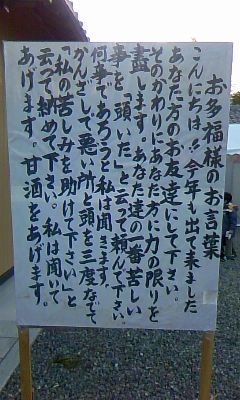 お多福様のお言葉
こんにちは!!今年も出て来ました
あなた方のお友達にして下さい。
そのかわりにあなた方に力の限りを
盡します。あなた達の一番苦しい
事を「頭いた」と云って頼んで下さい。
何事であろうと私は聞きます。
かんざしで悪い所と頭を三度なでて
「私の苦しみを助けて下さい」と
云って納めて下さい。私は聞いて
あげます。甘酒をあげます。